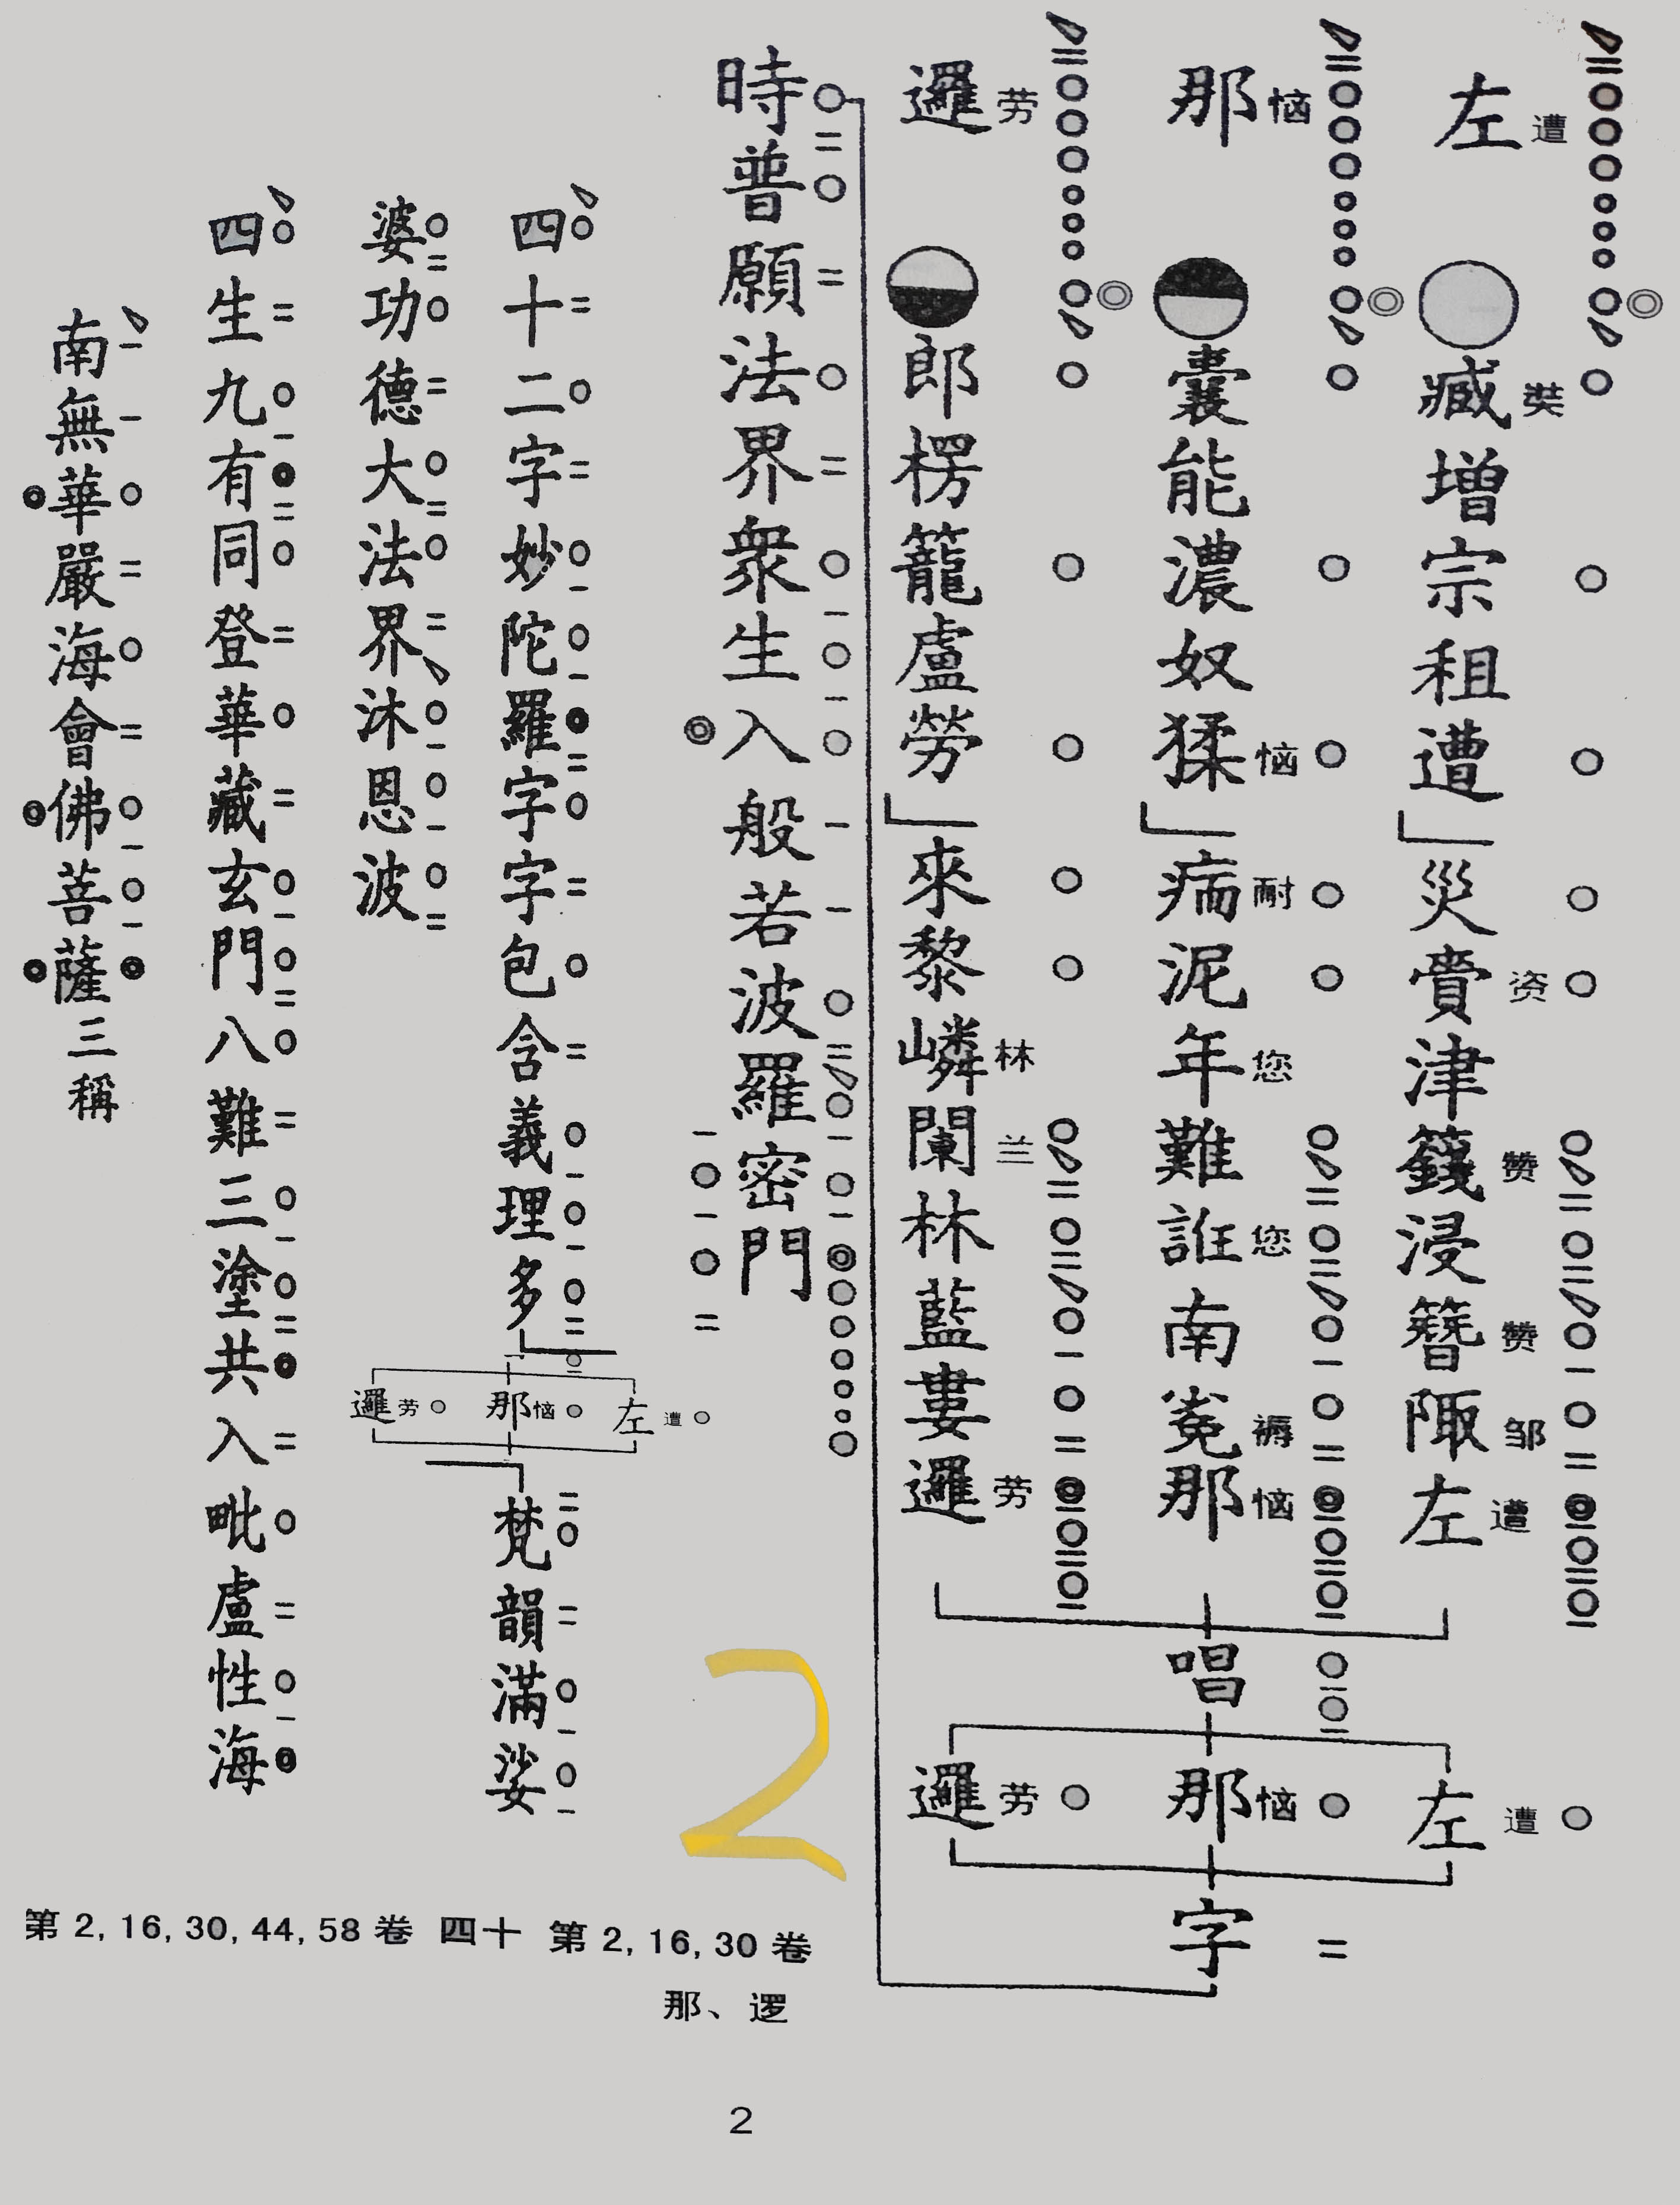 左遭
臧奘增宗租遭
災賷资津籛赞浸簪赞陬邹左遭
那恼
囊能濃奴猱恼
㾍耐泥年您難誑您南㝹褥那恼
邏劳
郎楞籠盧勞
來黎嶙林闌兰林藍婁邏劳
唱
左遭
那恼
邏劳
字
時普願法界衆生入般若波羅密門
四十二字妙陀羅字字包含義理多
左遭
那恼
邏劳
梵韻滿娑
婆功德大法界沐恩波
四生九有同登華藏玄門八難三塗共入毗盧性海
南無華嚴海會佛菩薩三稱
2
第 2, 16, 30, 44, 58 卷 四十 第 2, 16, 30 卷
那、逻
2